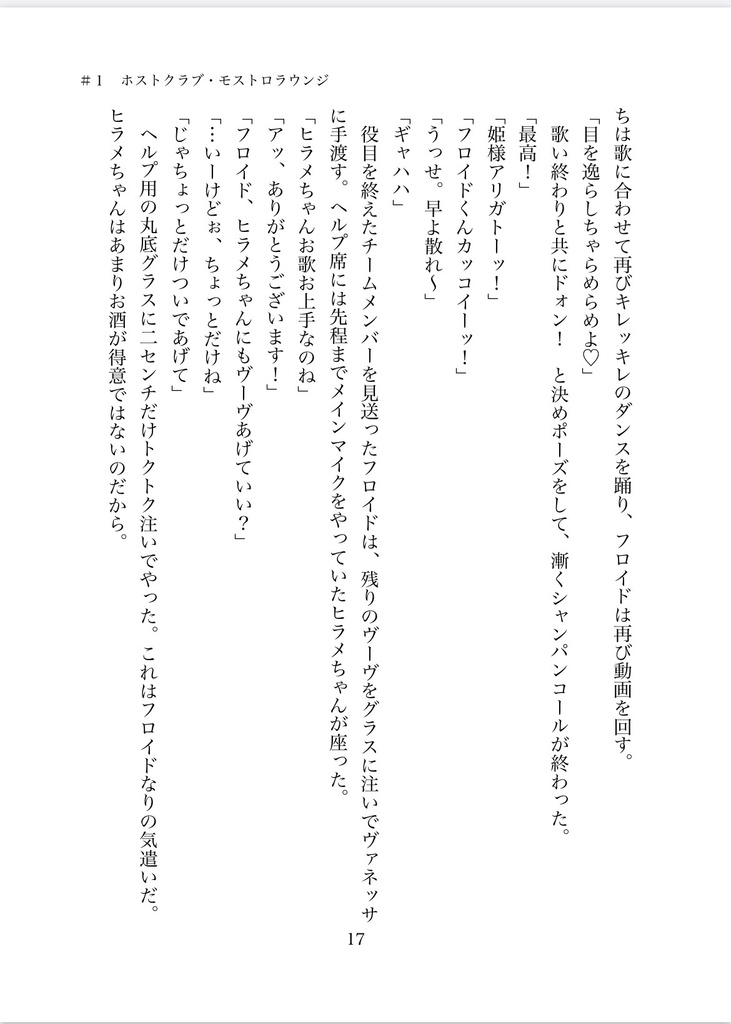 #1　ホストクラブ・モストロラウンジ
ちは歌に合わせて再びキレッキレのダンスを踊り、フロイドは再び動画を回す。
「目を逸らしちゃらめらめよ♡」
　歌い終わりと共にドォン！　と決めポーズをして、漸くシャンパンコールが終わった。
「最高！」
「姫様アリガトーッ！」
「フロイドくんカッコイーッ！」
「うっせ。早よ散れ〜」
「ギャハハ」
　役目を終えたチームメンバーを見送ったフロイドは、残りのヴーヴをグラスに注いでヴァネッサ
に手渡す。ヘルプ席には先程までメインマイクをやっていたヒラメちゃんが座った。
「ヒラメちゃんお歌お上手なのね」
「アッ、ありがとうございます！」
「フロイド、ヒラメちゃんにもヴーヴあげていい？」
「…いーけどぉ、ちょっとだけね」
「じゃちょっとだけついであげて」
　ヘルプ用の丸底グラスに二センチだけトクトク注いでやった。これはフロイドなりの気遣いだ。
ヒラメちゃんはあまりお酒が得意ではないのだから。
17